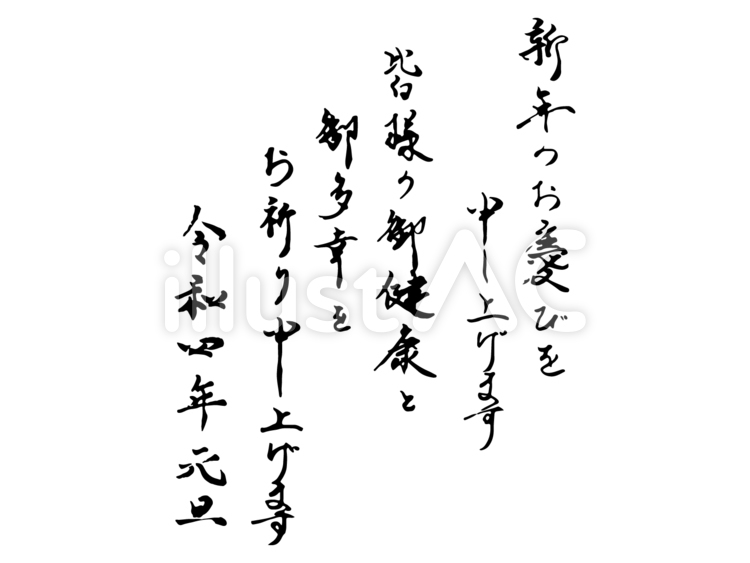 新年のお慶びを
申し上げます
皆様の御健康と
御多幸を
お祈り申し上げます
令和四年元旦
illustAC